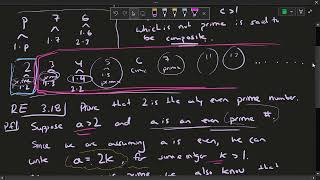 P 7 6 c>1
1·P 1·7 2·3 which is not prime is said to
be composite.
3 4 5 6 7 11 13 ........
prime 1·4 prime comp prime
1·2 1·3 2·2
RE 3.18 Prove that 2 is the only even prime number.
Pf| Suppose a>2 and a is an even prime #.
Since we are assuming a is even, we can
write a = 2k, for some integer k > 1.
is prime we also know that